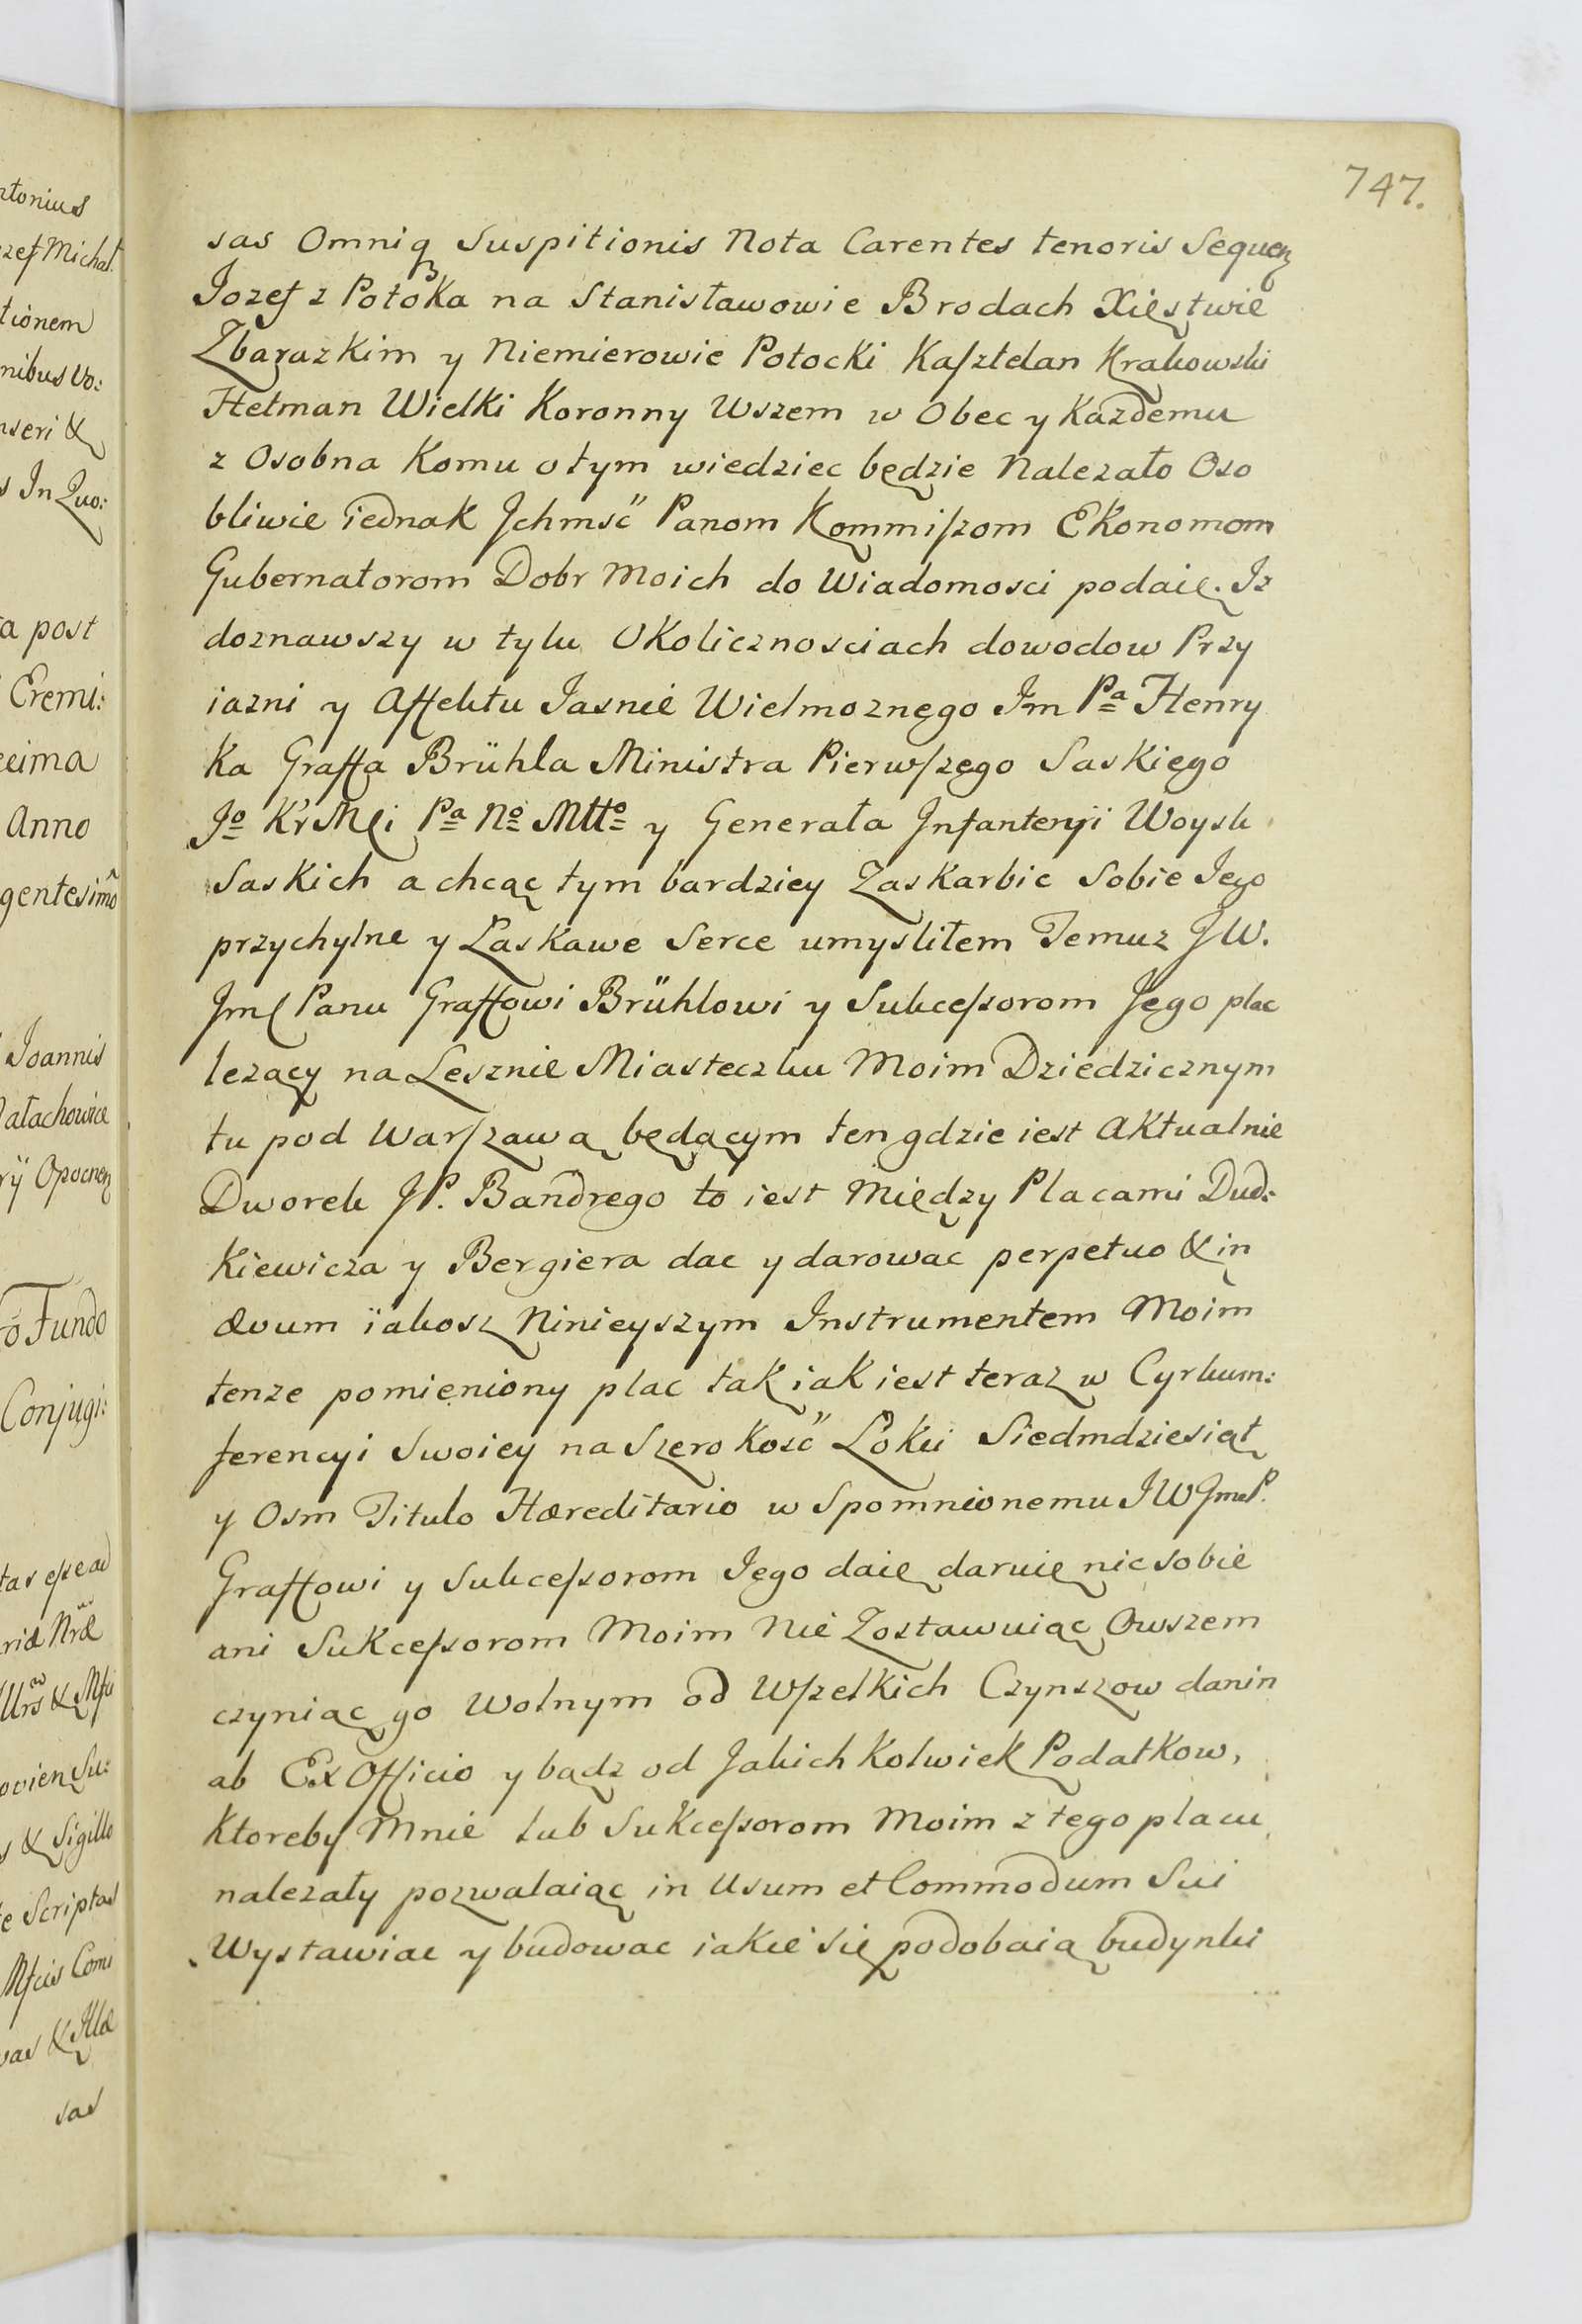 747.
sas Omniq₃ Suspitionis Nota Carentes tenoris Sequen
Jozef z Potoka na Stanisławowie Brodach Xięstwie
Zbarazkim y Niemierowie Potocki Kasztelan Krakowski
Hetman Wielki Koronny Wszem w Obec y Każdemu
z Osobna Komu o tym wiedziec będzie Nalezało Oso
bliwie iednak Jchmść Panom Kommiszom Ekonomom
Gubernatorom Dobr Moich do Wiadomosci podaię. Jz
doznawszy w tylu Okolicznosciach dowodow Przy
iazni y Affektu Jasnie Wielmoznego Jm Pa Henry
ka Graffa Brühla Ministra Pierwszego Saskiego
Jo Kr Mci Pa No Mtto y Generała Jnfanteryi Woysk
Saskich a chcąc tym bardziey Zaskarbic Sobie Jego
przychylne y Łaskawe Serce umysliłem Temuz JW.
Jmc Panu Graffowi Brühlowi y Sukcessorom Jego plac
lezący na Lesznie Miasteczku Moim Dziedzicznym
tu pod Warszawą będącym ten gdzie iest Aktualnie
Dworek JP. Bandrego to iest Między Placami Dud:
kiewicza y Bergiera dac y darowac perpetuo & in
ævum iakosz Ninieyszym Instrumentem Moim
tenze pomieniony plac tak iak iest teraz w Cyrkum:
ferencyi Swoiey na Szerokość Łokci Siedmdziesiąt
y Osm Titulo Hæreditario w Spomnionemu JW Jmc P.
Graffowi y Sukcessorom Jego daię daruię nic sobie
ani Sukcessorom Moim Nie Zostawuiąc Owszem
czyniąc go Wolnym od Wszelkich Czynszow danin
ab Ex Officio y bądz od Jakich kolwiek Podatkow,
Ktoreby Mnie lub Sukcessorom Moim z tego placu
nalezały pozwalaiąc in Usum et Commodum Sui
Wystawiac y budowac iakie się podobaią budynki
ntonius
zef Michał
tionem
nibus Vo:
nseri &
s In Quo:
ta post
Eremi:
ecima
Anno
gentesimo
Joannis
Małachowice
ryi Opocnen
Fundo
Conjugi:
tas esse ad
riæ Nræ
ovien Su:
s & Sigillo
te Scriptas
vas & Illæ
sas